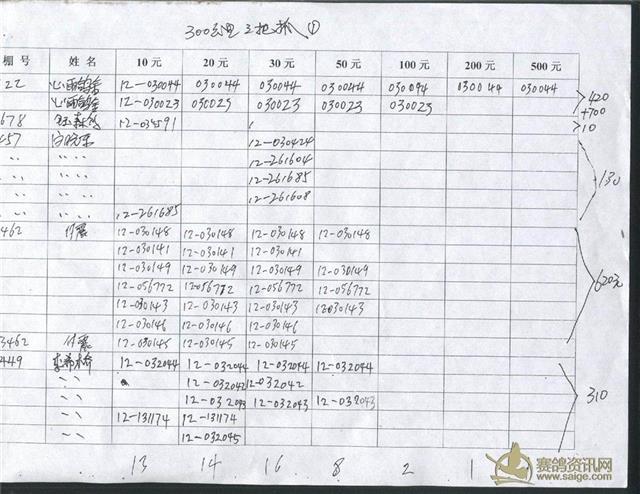 300公里三把抓①
棚号 姓名 10元 20元 30元 50元 100元 200元 500元
22 心丽鸽舍 12-030044 030044 030044 030044 030094 030044 030044
心丽鸽舍 12-030023 030023 030023 030023 030023 >420
+700
678 12-034591 >10
457 12-030424
〃 〃 12-261604
〃 〃 12-261685 130
〃 〃 12-261608
〃 〃 12-261685
462 付震 12-030148 12-030148 12-030148 12-030148
12-030141 12-030141 12-030141
12-030149 12-030149 12-030149 12-030149
12-056772 12-056772 12-056772 12-056772 620元
12-030143 12-030143 12-030143 12-030143
12-030146 12-030146 12-030146
3462 付震 12-030145 12-030145 12-030145
449 12-032044 12-032044 12-032044 12-032044
〃 12-032042 12-032042
〃 12-032043 12-032043 12-032043 310
〃 12-131174 12-131174
〃 12-032045
13 14 16 8 2 1
赛鸽资讯网
www.saige.com